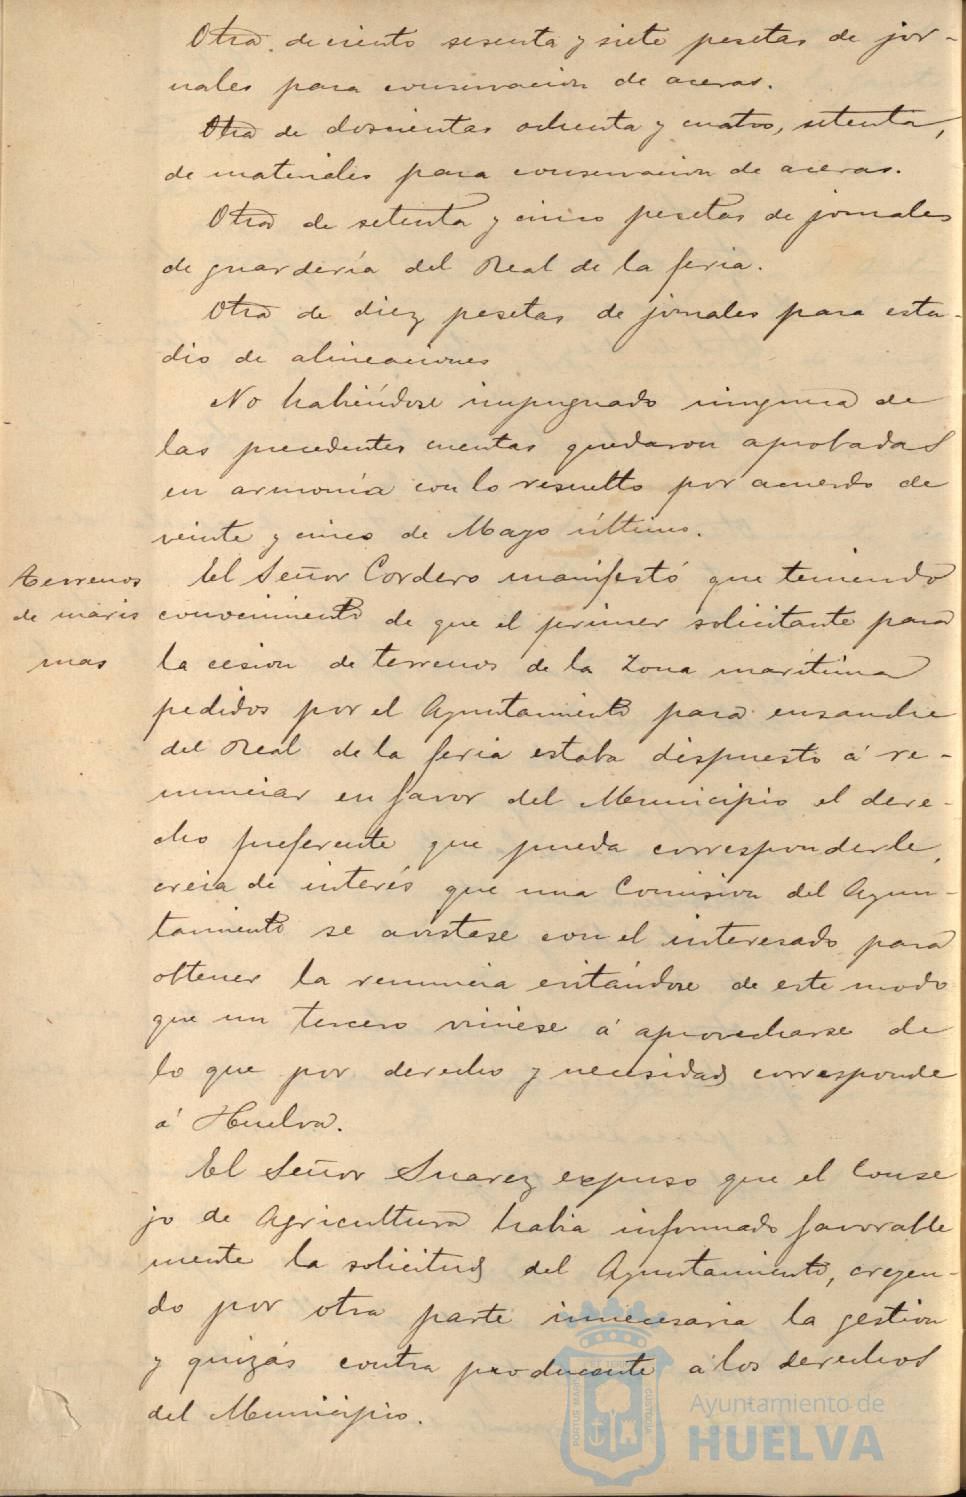 Otra de ciento sesenta y siete pesetas de jor-
nales para conservacion de aceras.
Otra de doscientas ochenta y cuatro, setenta,
de materiales para conservacion de aceras.
Otra de setenta y cinco pesetas de jornales
de guardería del Real de la feria.
Otra de diez pesetas de jornales para estu-
dio de alineaciones
No habiéndose impugnado ninguna de
las precedentes cuentas quedaron aprobadas
en armonía con lo resuelto por acuerdo de
veinte y cinco de Mayo último.
terrenos
de maris
mas
El Señor Cordero manifestó que teniendo
convencimiento de que el primer solicitante para
la cesion de terrenos de la zona marítima
pedidos por el Ayuntamiento para ensanche
del Real de la feria estaba dispuesto á re-
nunciar en favor del Municipio el dere-
cho preferente que pueda corresponderle,
creia de interés que una Comision del Ayun-
tamiento se avistase con el interesado para
obtener la renuncia evitándose de este modo
que un tercero viniese á aprovecharse de
lo que por derecho y necesidad corresponde
á Huelva.
El Señor Suarez expuso que el Conse
jo de Agricultura habia informado favorable
mente la solicitud del Ayuntamiento, creyen-
do por otra parte innecesaria la gestion
y quizás contra producente á los derechos
del Municipio.
PORTUS MARIS ET TERRAE CUSTODIA
Ayuntamiento de
HUELVA